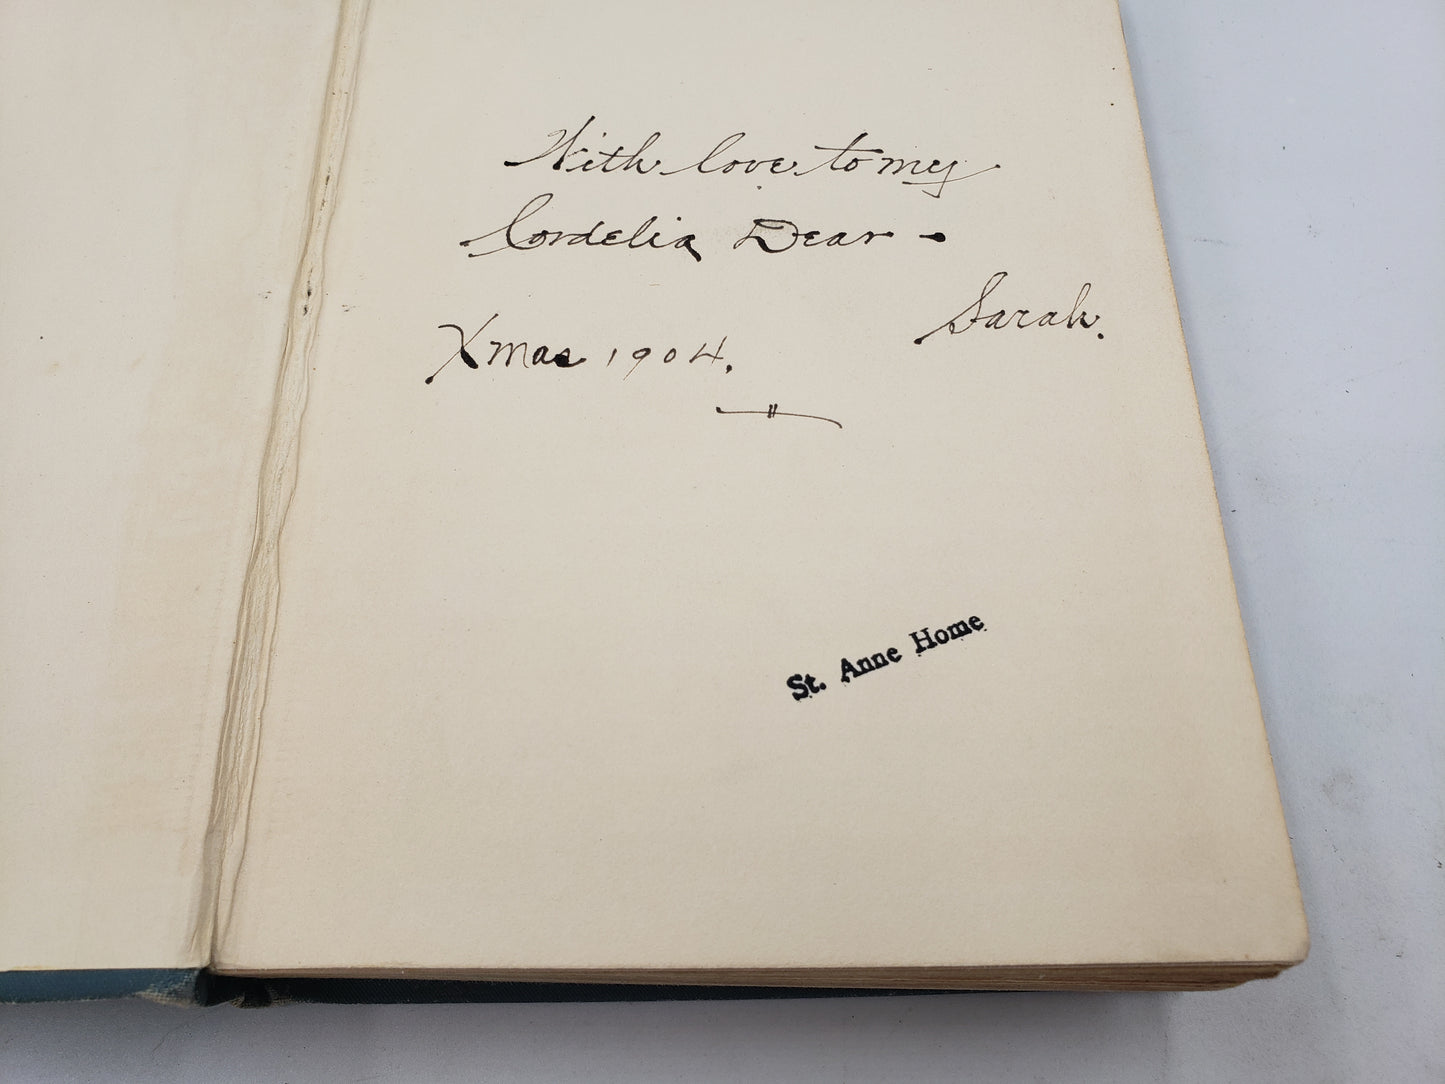 With love to my
Cordelia Dear -
Sarah.
Xmas 1904.
St. Anne Home